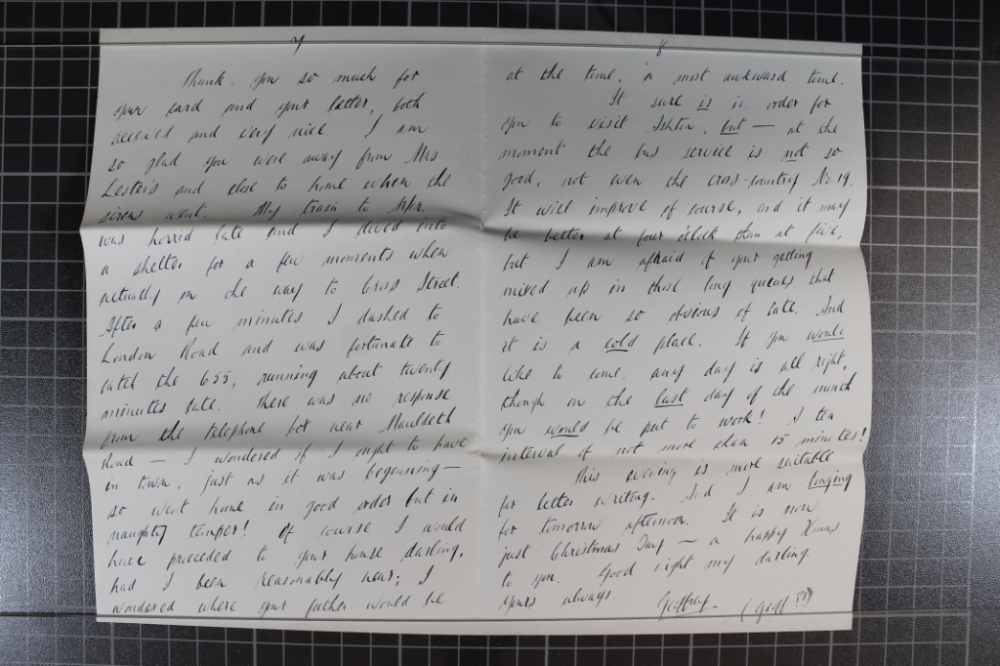 7
Thank you so much for
your card and your letter, both
received and very nice. I am
so glad you were away from Mrs
Lester's and close to home when the
sirens went. My train to M/r.
was horrid late and I dived into
a shelter for a few moments when
actually on the way to Cross Street.
After a few minutes I dashed to
London Road and was fortunate to
catch the 655, running about twenty
minutes late. There was no response
from the telephone box near Mauldeth
Road — I wondered if I ought to have
in town, just as it was beginning —
so went home in good order but in
naughty temper! Of course I would
have proceeded to your house darling,
had I been reasonably near; I
wondered where your father would be
8
at the time, a most awkward time.
It sure is in order for
you to visit Ashton, but — at the
moment the bus service is not so
good, not even the cross-country No. 19.
It will improve of course, and it may
be better at four o'clock than at five,
but I am afraid of your getting
mixed up in those long queues that
have been so obvious of late. And
it is a cold place. If you would
like to come, any day is all right,
though on the last day of the month
you would be put to work! I tea
interval of not more than 15 minutes!
This evening is more suitable
for letter writing. And I am longing
for tomorrow afternoon. It is now
just Christmas Day — a happy Xmas
to you. Good night my darling.
Yours always.
Geoffrey (Geoff??)